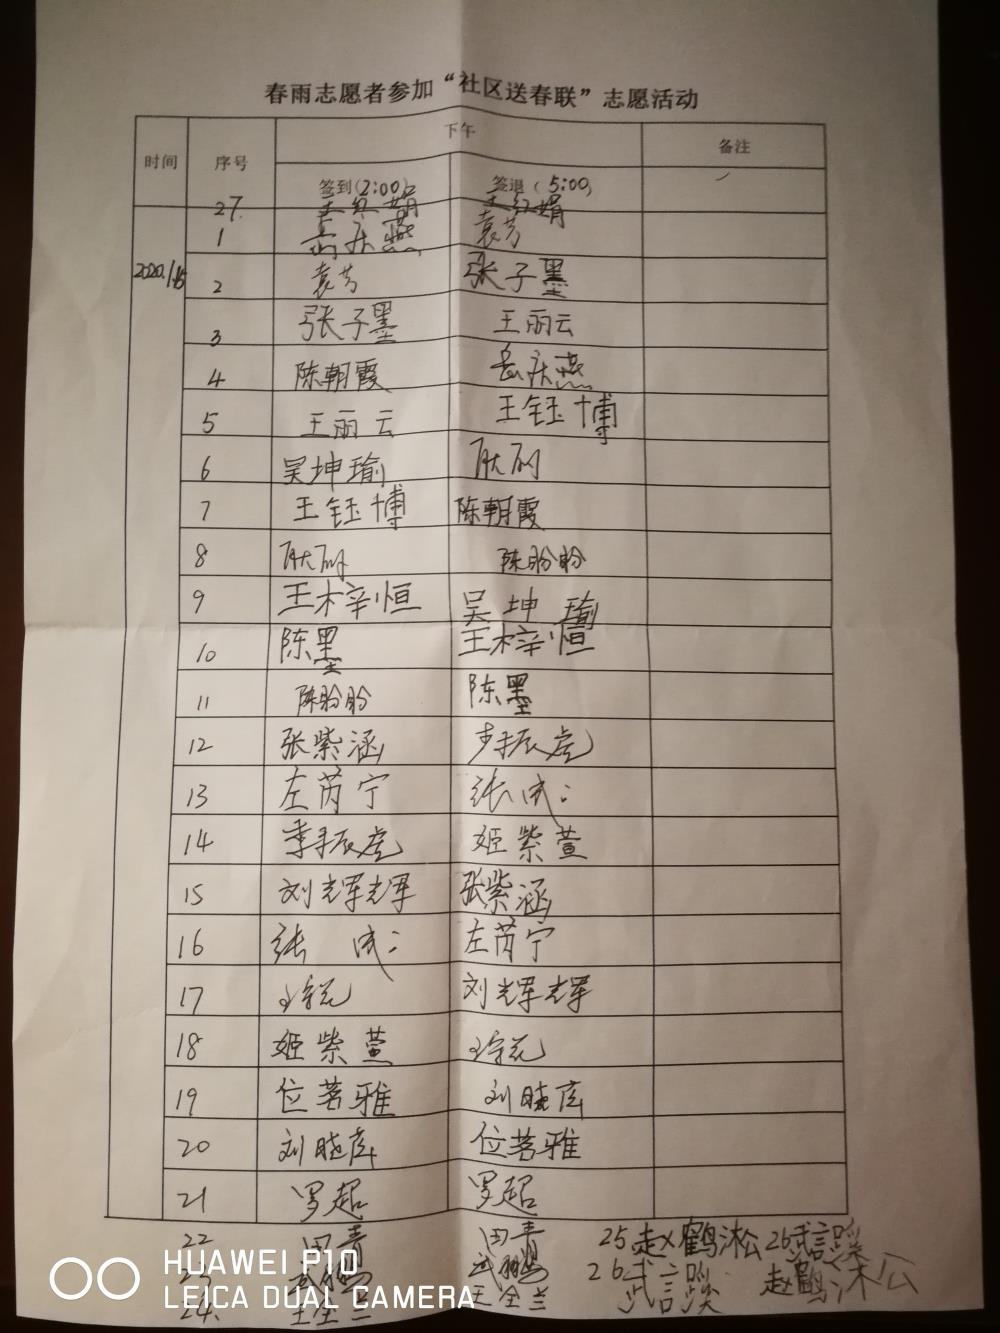 春雨志愿者参加“社区送春联”志愿活动
时间 序号 下午 备注
签到(2:00) 签退(5:00)
27. 王红娟 王红娟
2020.1.15
1 岳庆燕 袁芳
2 袁芳 张子墨
3 张子墨 王丽云
4 陈朝霞 岳庆燕
5 王丽云 王钰博
6 吴坤瑜
7 王钰博 陈朝霞
8 陈盼盼
9 王梓恒 吴坤瑜
10 陈墨 王梓恒
11 陈盼盼 陈墨
12 张紫涵 李振虎
13 左芮宁 张成
14 李振虎 姬紫萱
15 刘辉辉 张紫涵
16 张成 左芮宁
17 刘辉辉
18 姬紫萱
19 位茗雅 刘晓库
20 刘晓库 位茗雅
21 罗超 罗超
22 田青 田青 25 赵鹤淞 26 武言蹊
23 武鹏 武鹏 26 武言蹊 赵鹤淞
24. 王全兰 王全兰
HUAWEI P10
LEICA DUAL CAMERA